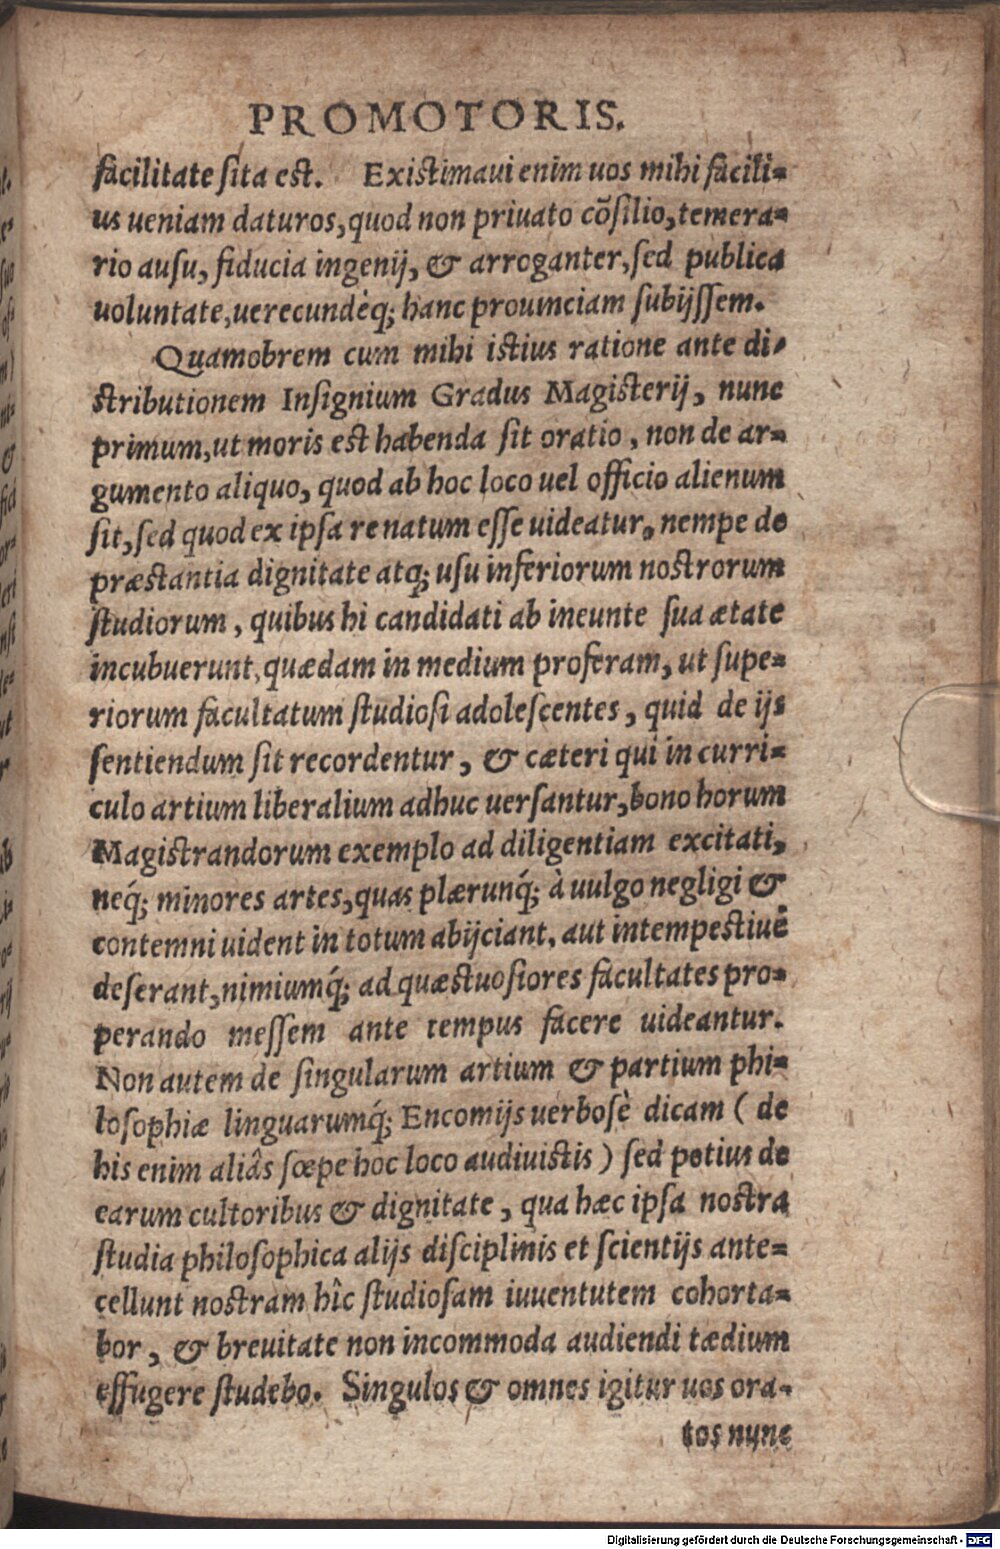 PROMOTORIS.
facilitate ſita est. Existimaui enim uos mihi facili-
us ueniam daturos, quod non priuato cōſilio, temera-
rio auſu, fiducia ingenij, & arroganter, ſed publica
uoluntate, uerecundèq; hanc prouinciam ſubijſſem.
Quamobrem cum mihi istius ratione ante di-
stributionem Inſignium Gradus Magisterij, nunc
primum, ut moris est habenda ſit oratio, non de ar-
gumento aliquo, quod ab hoc loco uel officio alienum
ſit, ſed quod ex ipſa re natum eſſe uideatur, nempe de
præstantia dignitate atq; uſu inferiorum nostrorum
ſtudiorum, quibus hi candidati ab ineunte ſua ætate
incubuerunt, quædam in medium proferam, ut ſupe-
riorum facultatum ſtudioſi adoleſcentes, quid de ijs
ſentiendum ſit recordentur, & cæteri qui in curri-
culo artium liberalium adhuc uerſantur, bono horum
Magistrandorum exemplo ad diligentiam excitati,
neq́; minores artes, quas plærunq́; à uulgo negligi &
contemni uident in totum abijciant, aut intempestiuè
deſerant, nimiumq́; ad quæstuoſiores facultates pro-
perando meſſem ante tempus facere uideantur.
Non autem de ſingularum artium & partium phi-
loſophiæ linguarumq́; Encomijs uerboſè dicam ( de
his enim aliâs ſœpe hoc loco audiuistis ) ſed potius de
earum cultoribus & dignitate, qua hæc ipſa nostra
ſtudia philoſophica alijs diſciplinis et ſcientijs ante-
cellunt nostram hîc ſtudioſam iuuentutem cohorta-
bor, & breuitate non incommoda audiendi tædium
effugere ſtudebo. Singulos & omnes igitur uos ora-
tos nunc
Digitalisierung gefördert durch die Deutsche Forschungsgemeinschaft - DFG